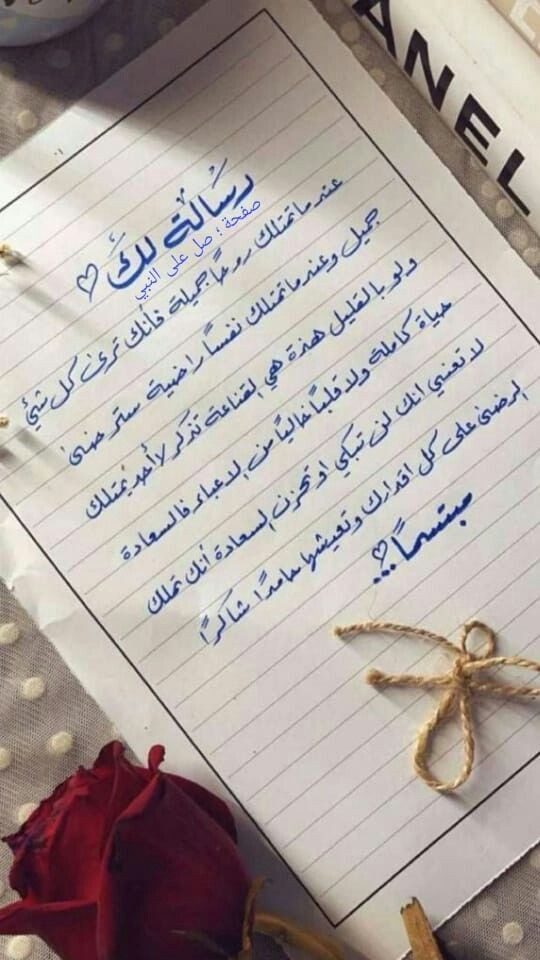 رسالة لك
صفحة ؛ صل على النبي
عندما تمتلك روحًا جميلة فأنك ترى كل شيء
جميل وعندما تمتلك نفسًا راضية سترضى
ولو بالقليل هذه هي القناعة تذكر لا أحد يمتلك
حياة كاملة ولا قلبًا خاليًا من الاعباء فالسعادة
لا تعني انك لن تبكي او تحزن السعادة أنك تملك
الرضى على كل اقدارك وتعيشها حامدًا شاكرًا
مبتسمًا...
ANEL